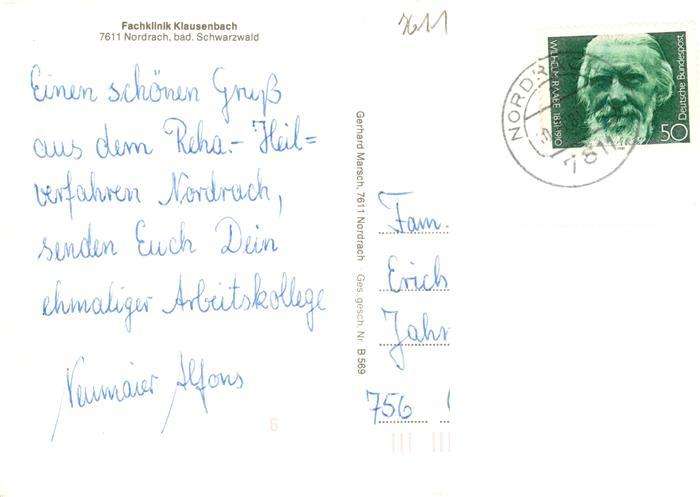 Fachklinik Klausenbach
7611 Nordrach, bad. Schwarzwald
7611
Einen schönen Gruß
aus dem Reha.- Heil=
verfahren Nordrach,
senden Euch Dein
ehmaliger Arbeitskollege
Neumaier Alfons
6
Gerhard Marsch, 7611 Nordrach Ges. gesch. Nr. B 569
WILHELM RAABE 1831-1910
Deutsche Bundespost
50
NORDR
7611
Fam.
Erich
Jahr
756